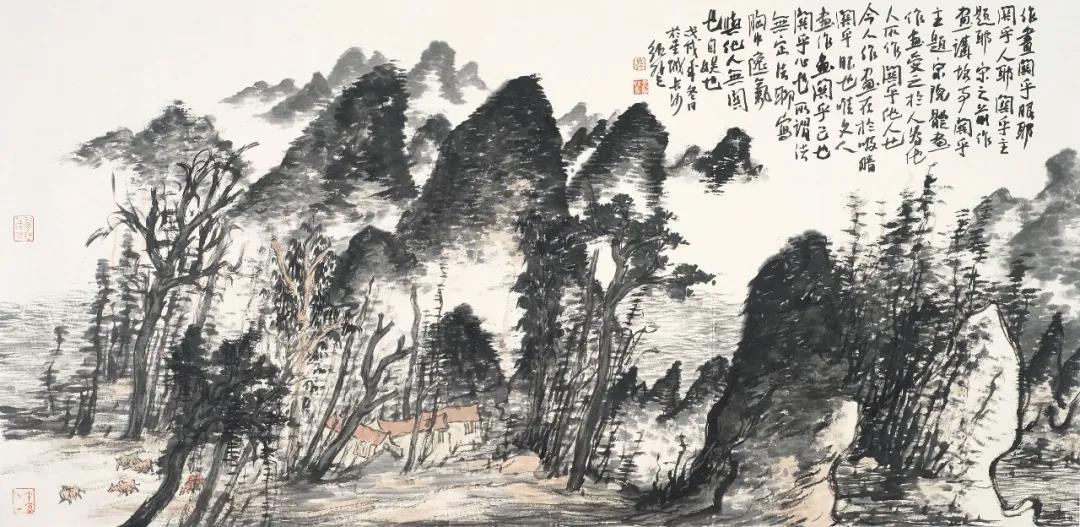 作畫關乎眼耶
關乎人耶關乎主
題耶宋之前作
畫講故事關乎
主題宋院體畫
作畫受之於人為他
人而作關乎他人也
今人作畫在於吸睛
關乎眼也唯文人
畫作畫關乎己也
關乎心也所謂法
無定法聊寫
胸中逸氣
與他人無關
也自娛也
戊戌年冬日
於星城長沙